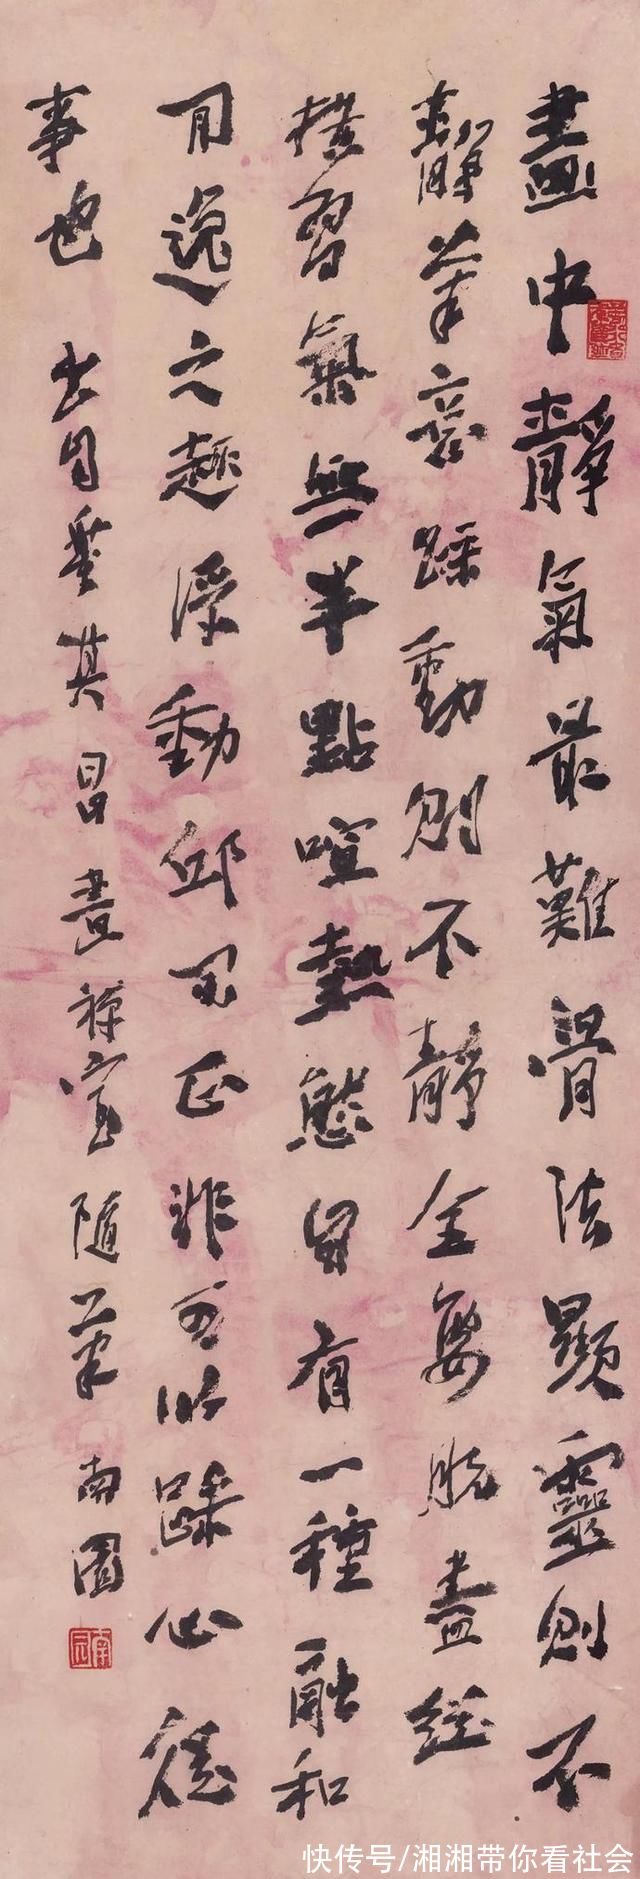 畫中靜氣最難骨法顯靈則不
靜筆意躁動則不靜全要脫盡縱
橫習氣無半點喧熱態自有一種融和
閒逸之趣浮動邱間正非可以躁心從
事也 出自董其昌畫禪室隨筆 南園
快传号/湘湘带你看社会